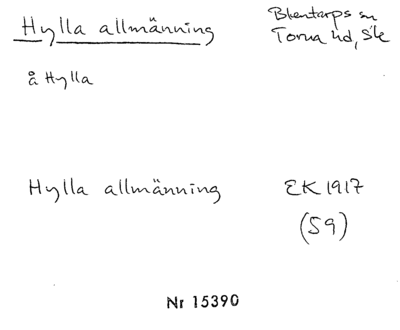 Hylla allmänning
Blentarps sn
Torna hd, Sk
å Hylla
Hylla allmänning
EK 1917
(59)
Nr 15390